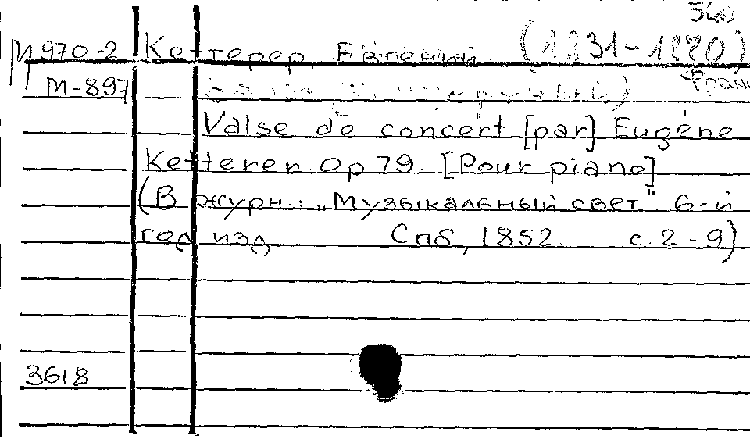 540
М 970-2 Кеттерер, Евгений (1831-1880)
М-897 Франц
Valse de concert [par] Eugène
Ketterer Op 79. [Pour piano]
(В журн.: „Музыкальный свет" 6-й
год изд Спб, 1852. с. 2-9)
3618